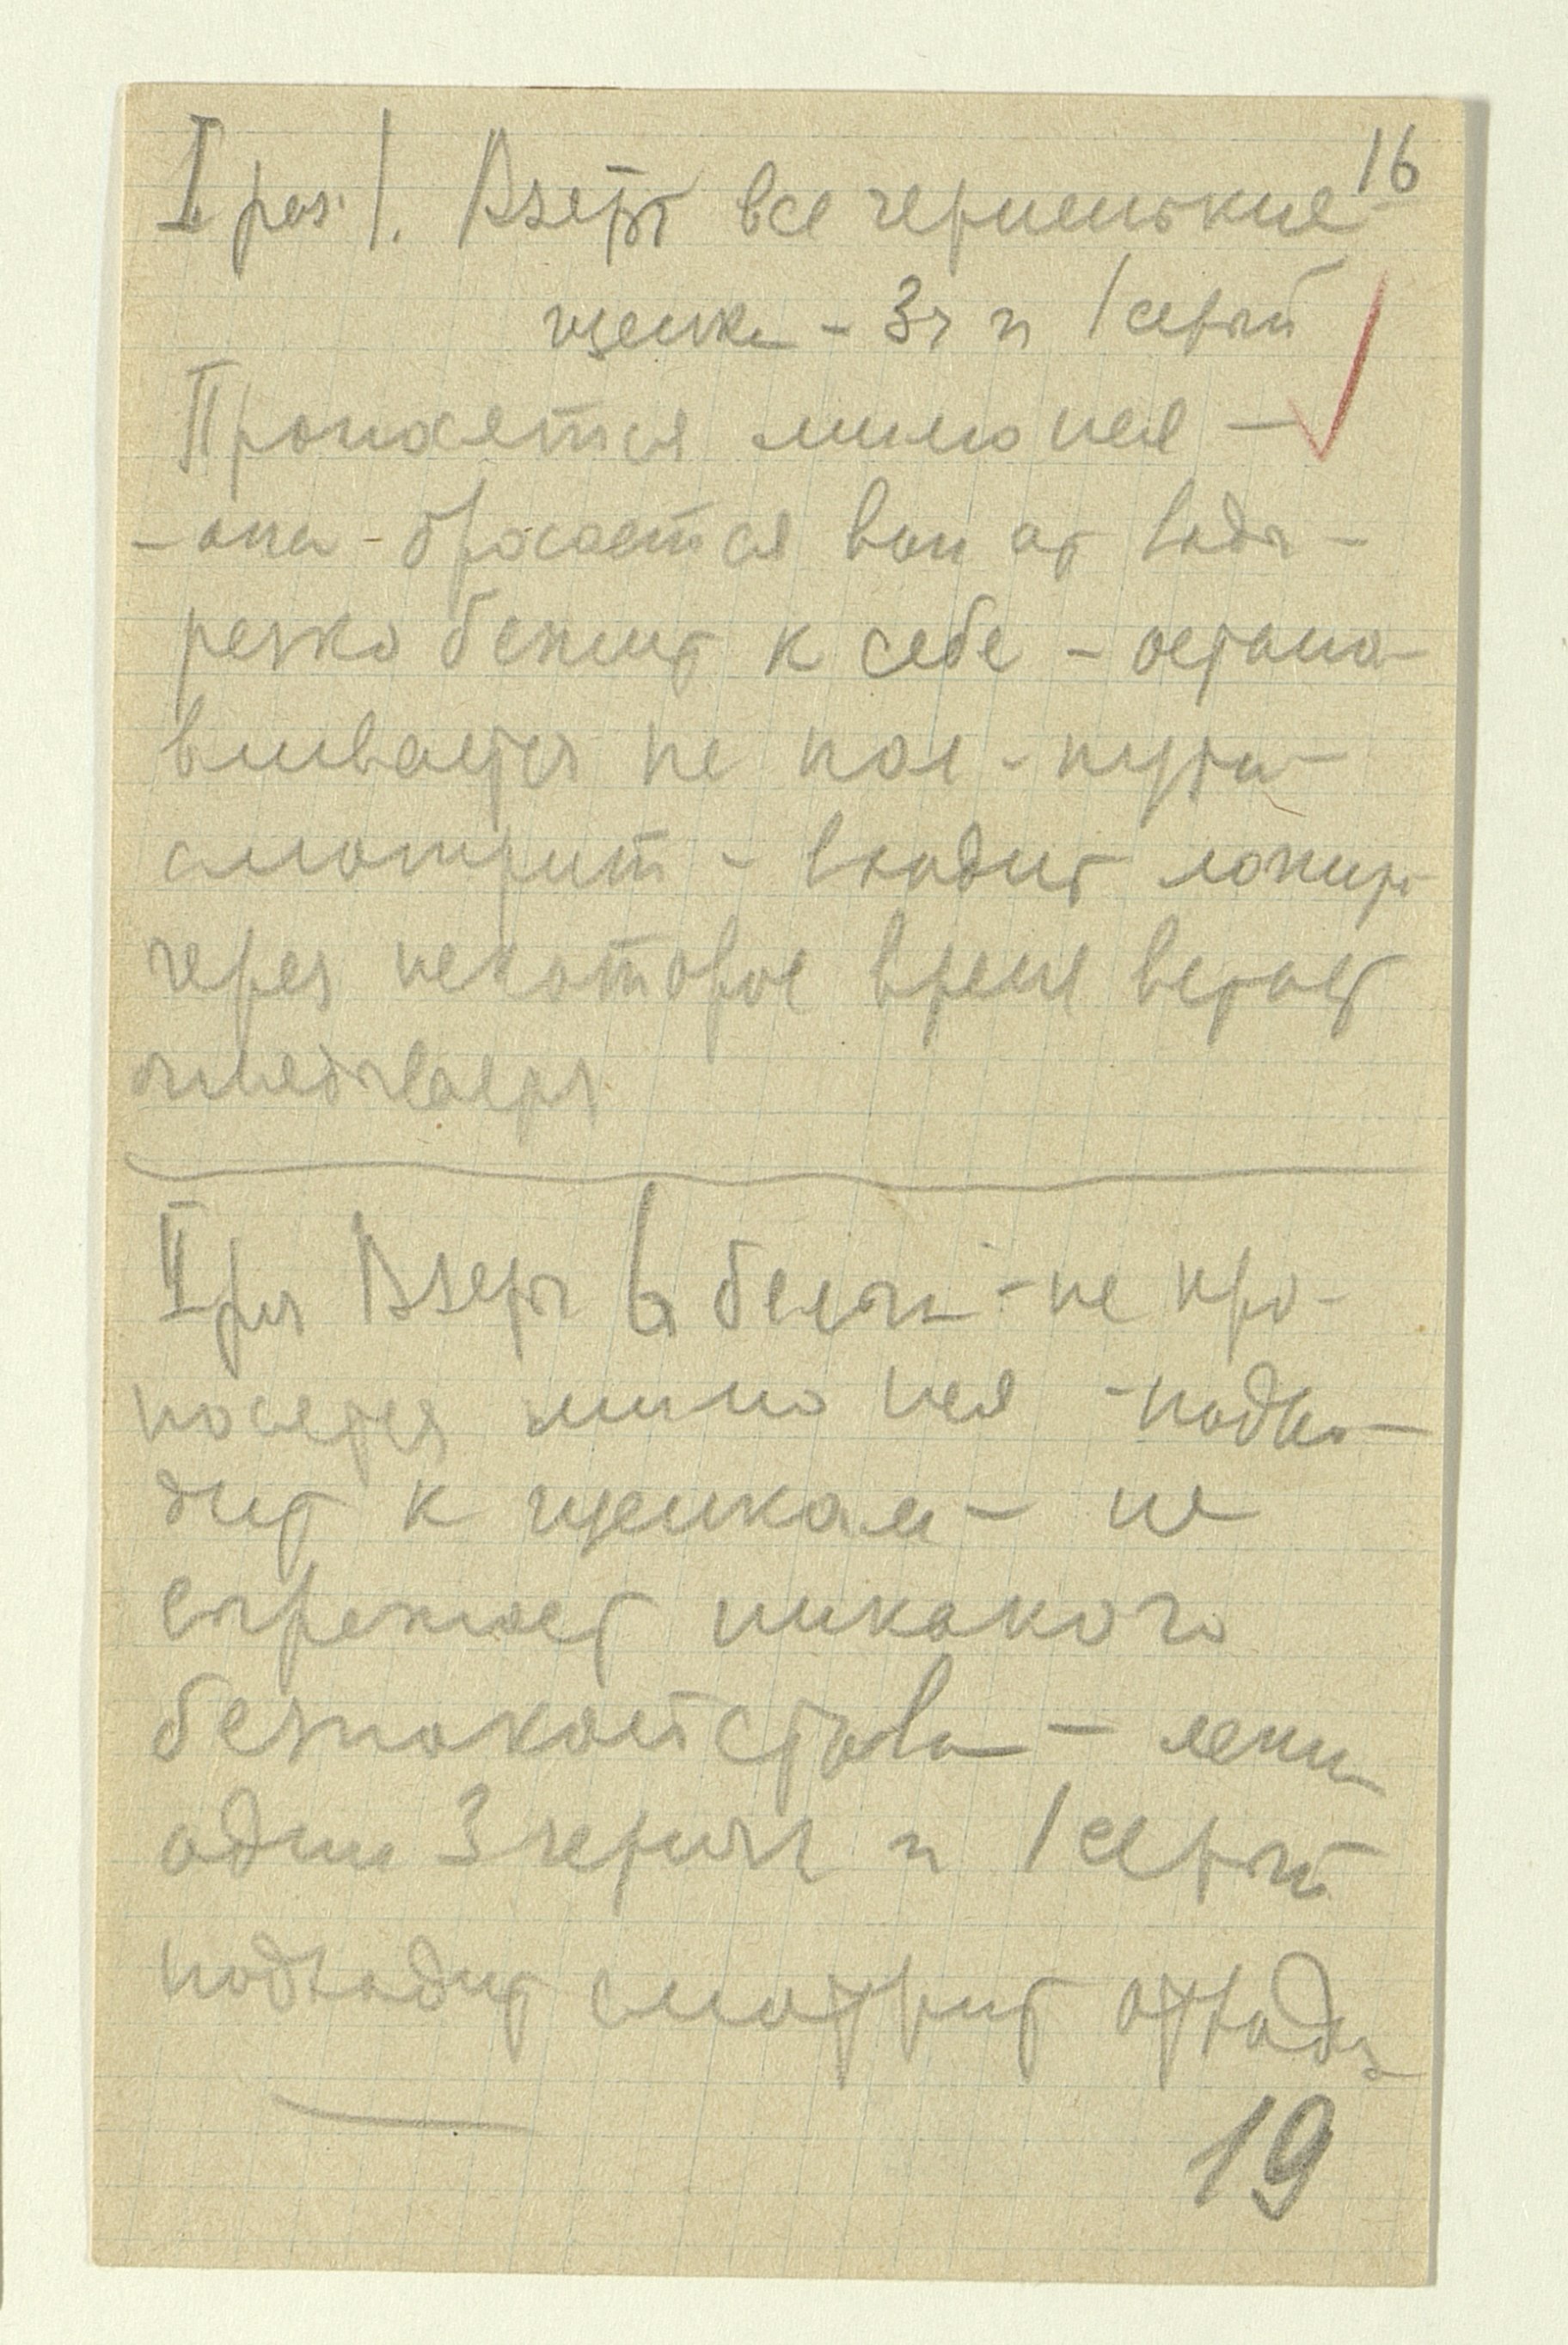 16
I раз 1. Взяты все черненькие
щенки - 3 ч и 1 серый
Проносятся мимо нея -
- она - бросается вон от входа -
резко бежит к себе - остана-
вливается на пол-пути -
смотрит - входит ложится
через некоторое время встает
оглядывается
II раз Взяты 6 белых - не про-
носятся мимо нея - подхо-
дит к щенкам - не
выражает никакого
безпокойства - лежи
один 3 черных и 1 серый
подходит смотрит отходит
19